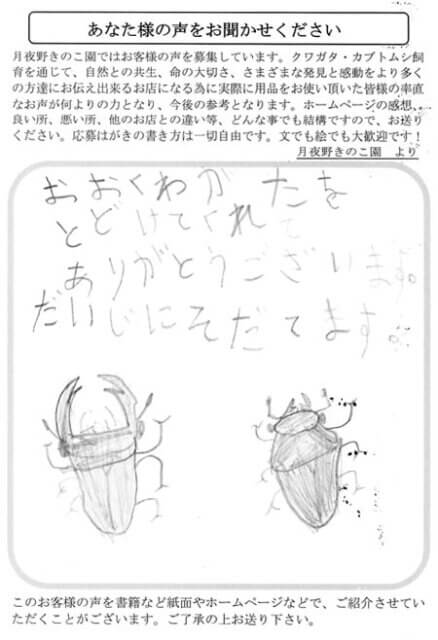 あなた様の声をお聞かせください
月夜野きのこ園ではお客様の声を募集しています。クワガタ・カブトムシ飼
育を通じて、自然との共生、命の大切さ、さまざまな発見と感動をより多く
の方達にお伝え出来るお店になる為に実際に用品をお使い頂いた皆様の率直
なお声が何よりの力となり、今後の参考となります。ホームページの感想、
良い所、悪い所、他のお店との違い等、どんな事でも結構ですので、お送り
ください。応募はがきの書き方は一切自由です。文でも絵でも大歓迎です！
月夜野きのこ園 より
おおくわがたを
とどけてくれて
ありがとうございます。
だいじにそだてます。
このお客様の声を書籍など紙面やホームページなどで、ご紹介させていた
だくことがございます。ご了承の上お送り下さい。